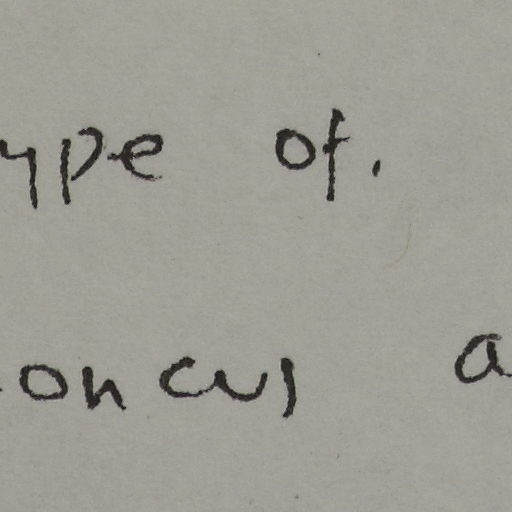 ype of.
oncus a